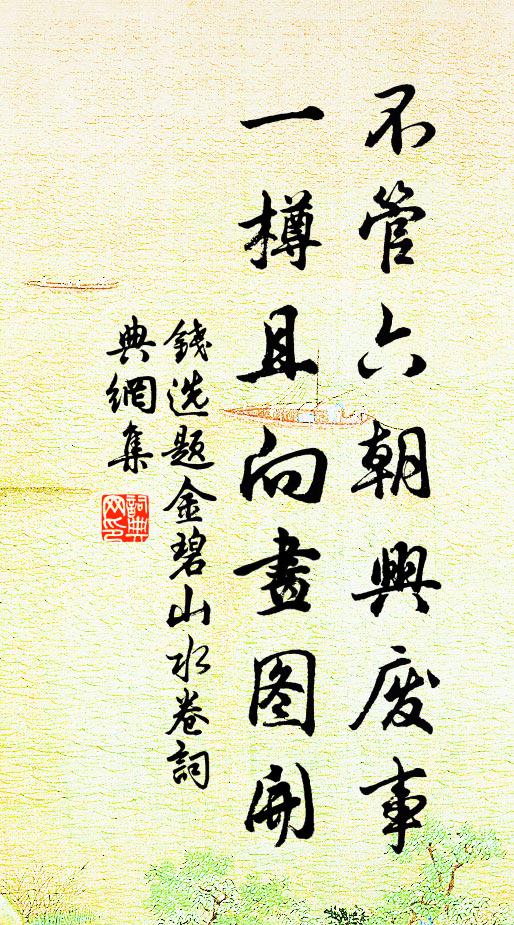 不管六朝興废事
一樽且向畫图開
錢选题金碧山水卷詞
典網集
詞典网印